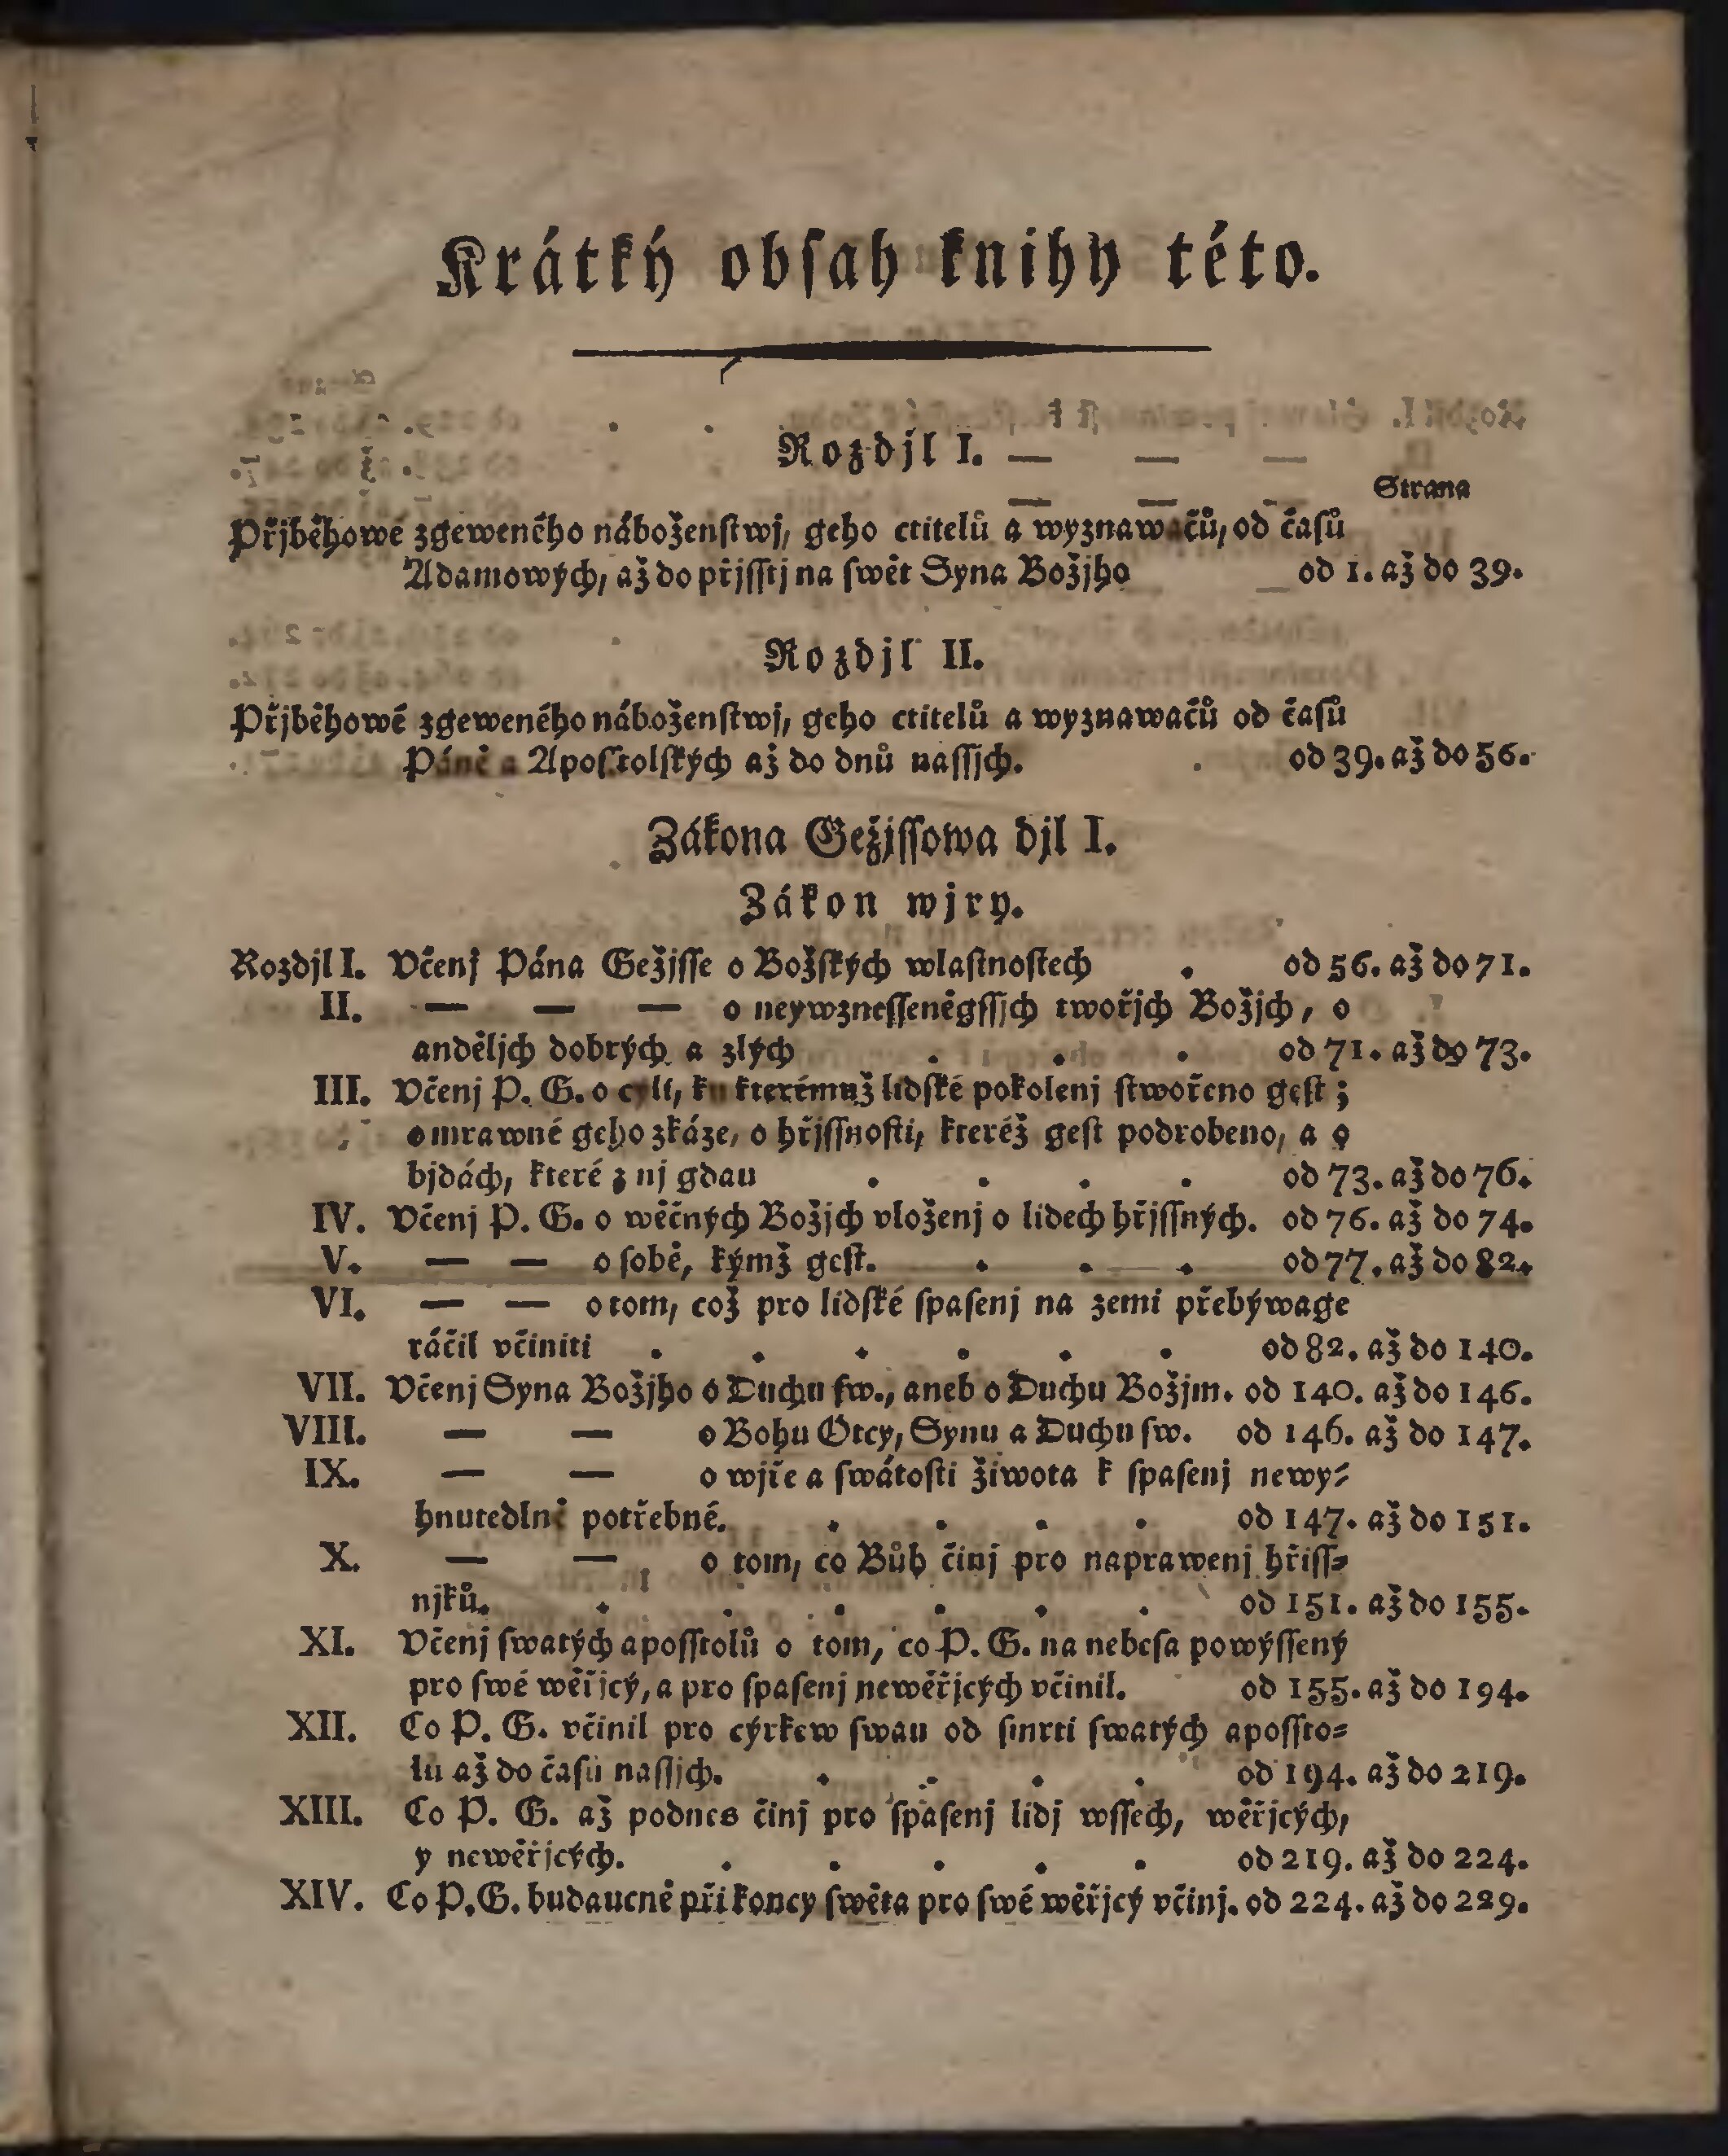 Krátký obsah knihy této.
Rozdjl I.
Strana
Přjběhowé zgeweného náboženstwj, geho ctitelů a wyznawačů, od časů
Adamowých, až do přjsstj na swět Syna Božjho od 1. až do 39.
Rozdjl II.
Přjběhowé zgeweného náboženstwj, geho ctitelů a wyznawačů od časů
Páně a Apostolských až do dnů nassjch. . od 39. až do 56.
Zákona Gežjssowa djl I.
Zákon wjry.
Rozdjl I. Včenj Pána Gežjsse o Božských wlastnostech . od 56. až do 71.
II. — — — o neywznesseněgssjch twořjch Božjch, o
andělјch dobrých a zlých . . . od 71. až do 73.
III. Včenj P. G. o cyli, ku kterémuž lidské pokolenj stwořeno gest;
o mrawné geho zkáze, o hřjssnosti, kteréž gest podrobeno, a o
bjdách, které z nj gdau . . . . od 73. až do 76.
IV. Včenj P. G. o wěčných Božjch vloženj o lidech hřjssných. od 76. až do 74.
V. — — o sobě, kýmž gest. . . . od 77. až do 82.
VI. — — o tom, což pro lidské spasenj na zemi přebýwage
ráčil včiniti . . . . . . od 82. až do 140.
VII. Včenj Syna Božjho o Duchu sw., aneb o Duchu Božjm. od 140. až do 146.
VIII. — — o Bohu Otcy, Synu a Duchu sw. od 146. až do 147.
IX. — — o wjře a swátosti žiwota k spasenj newy-
hnutedlně potřebné. . . . . od 147. až do 151.
X. — — o tom, co Bůh činj pro naprawenj hřjss-
njků. . . . . . . od 151. až do 155.
XI. Včenj swatých aposstolů o tom, co P. G. na nebesa powýssený
pro swé wěřjcý, a pro spasenj newěřjcých včinil. od 155. až do 194.
XII. Co P. G. včinil pro cýrkew swau od smrti swatých apossto-
lů až do časů nassjch. . . . . od 194. až do 219.
XIII. Co P. G. až podnes činj pro spasenj lidj wssech, wěřjcých,
y newěřjcých. . . . . . od 219. až do 224.
XIV. Co P. G. budaucně při koncy swěta pro swé wěřjcý včinj. od 224. až do 229.